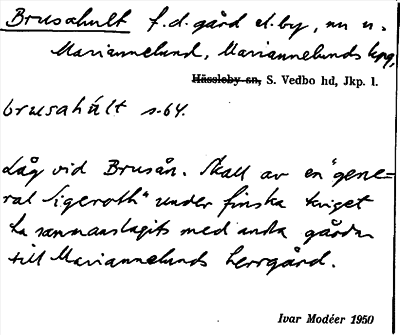 Brusahult f.d. gård el. by, nu u.
Mariannelund, Mariannelunds kpg,
Hässleby sn, S. Vedbo hd, Jkp. l.
brusahult s. 64.
Låg vid Brusån. Skall av en "gene=
ral Sigeroth" under finska kriget
ha sammanslagits med andra gårdar
till Mariannelunds herrgård.
Ivar Modéer 1950